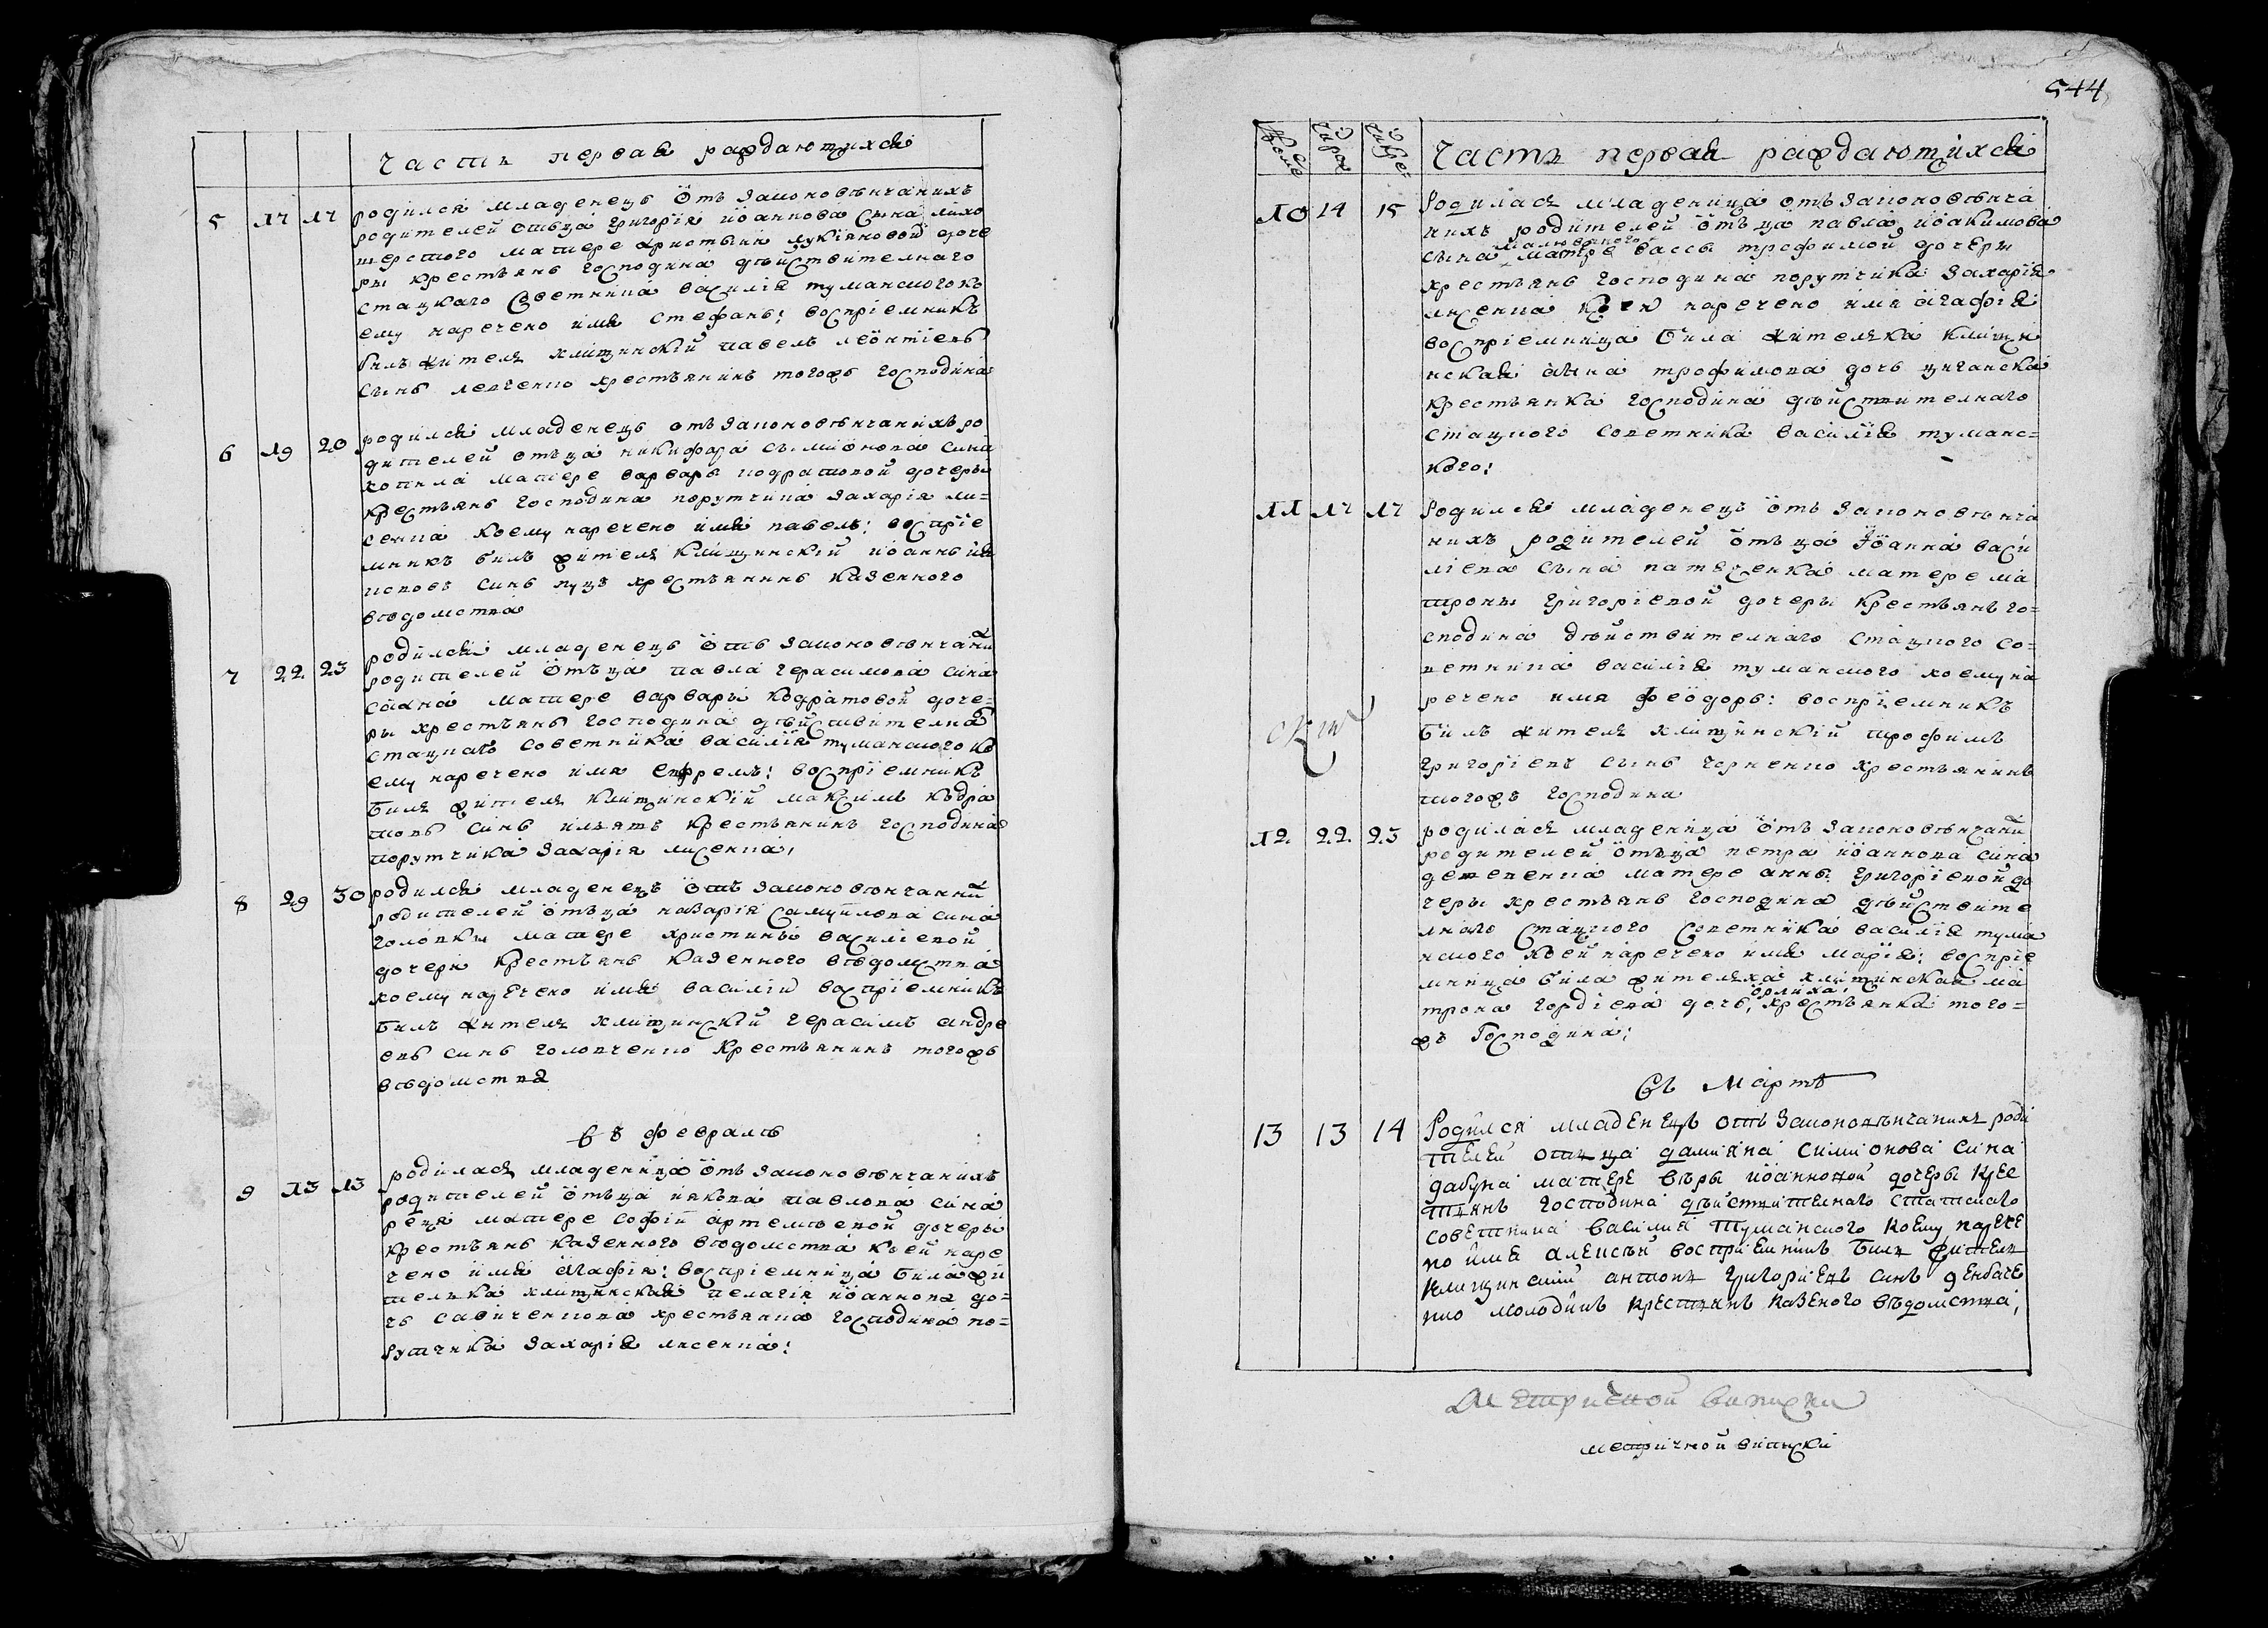 Часть первая раждающихся
5 17 17 родился младенецъ отъ законовѣнчанихъ
родителей отъца григорія иоаннова сына лихо
шерстого матере христыни лукіяновой доче
ры крестьянъ господина дѣйствителнаго
стацкаго советника василія туманского ко
ему наречено имя стефанъ: воспріемникъ
билъ жителя клищинскій павелъ леонтіевъ
сынъ левченко крестьянинъ тогожъ господина
6 19 20 родился младенецъ отъ законовѣнчанихъ ро
дителей отъца никифора съмионова сина
матере варвары кодратовой дочеры
крестьянъ господина порутчика захарія ли=
сенка коему наречено имя павелъ: воспріе
мникъ билъ жителя клищинскій иоаннъ
сынъ куцъ крестьянинъ казенного
вѣдомства
7 22 23 родился младенецъ отъ законовѣнчаних
родителей отъца павла герасимова сина
матере варвары кодратовой доче=
ры крестьянъ господина дѣйствителна
стацкаго советника василія туманского ко
ему наречено имя ефремъ: воспріемникъ
билъ жителя клищинскій максимъ кодра
товъ синъ крестьянинъ господина
порутчика захарія лисенка,
8 29 30 родился младенецъ отъ законовѣнчанних
родителей отъца назарія самуилова сина
головки матере христины василіевой
дочери крестьянъ казенного вѣдомства
коему наречено имя василій воспріемникъ
билъ жителя клищинскій герасимъ андре
евъ синъ головченко крестьянинъ тогожъ
вѣдомства
въ февралѣ
9 13 13 родилася младеница отъ законовѣнчанихъ
родителей отъца иякова павлова сина
матере софіи артемьевой дочеры
крестьянъ казенного вѣдомства коей наре
чено имя агафія: воспріемница била жи
телька клищинская пелагія иоаннова до=
чъ савиченкова крестьянка господина по=
рутчика захарія лисенка:
544
Часть первая раждающихся
10 14 15 Родилася младеница отъ законовѣнча
нихъ родителей отъца павла иоакимова
сына матре вассы трофимой дочеры
крестьянъ господина порутчика захарія
лисенка коей наречено имя агафія
воспріемница била жителька клищи
нская анна трофимова дочъ циганска
крестьянка господина дѣйствителнаго
стацкого советника василія туманс=
кого:
11 17 17 Родился младенецъ отъ законовѣнча
нихъ родителей отъца Иоанна васи
ліева сына матере ма
троны григоріевой дочеры крестьянъ го=
сподина дѣйствителнаго стацкого со=
ветника василія туманского коему на
речено имя феодоръ: воспріемникъ
билъ жителя клищинскій трофимъ
григоріевъ сынъ черненко крестьянинъ
тогожъ господина
12 22 23 родилася младеница отъ законовѣнчаних
родителей отъца петра иоаннова сина
матере анны григоріевой до
черы крестьянъ господина дѣйствите
лнаго стацкого советника василія тума
нского коей наречено имя марія: воспріе
мница била жителька клищинская ма
орлиха,
трона гордіева дочъ, крестьянка того=
жъ Господина:
въ мартѣ
13 13 14 Родился младенецъ отъ законовѣнчаних роди
телей отъца даміяна симионова сина
дабуна матере вѣры иоанновой дочеры крес
тянъ господина дѣйствителнаго статского
советника василия туманского коему нарече
но имя алексѣй воспріемникъ билъ жителъ
клищинский антонъ григориевъ синъ
молодикъ крестянъ казеного вѣдомства,
метричной виписки
метричной випыски